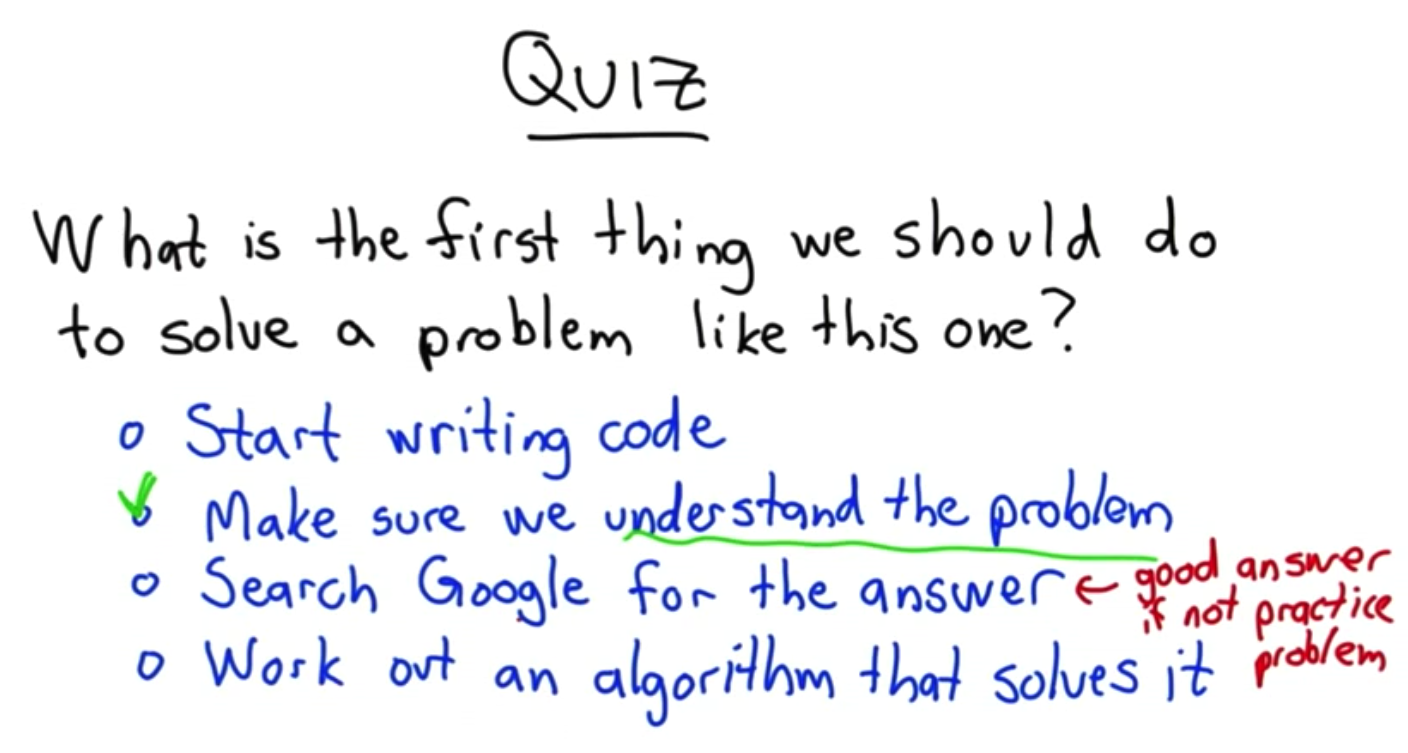 QUIZ
What is the first thing we should do
to solve a problem like this one?
o Start writing code
o Make sure we understand the problem
o Search Google for the answer ← good answer
if not practice
problem
o Work out an algorithm that solves it